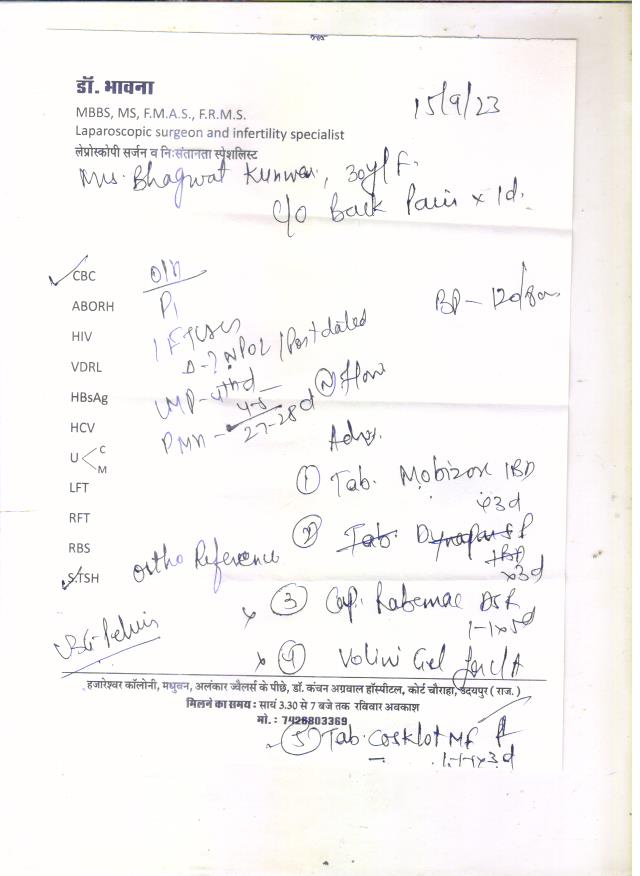 डॉ. भावना
MBBS, MS, F.M.A.S., F.R.M.S.
Laparoscopic surgeon and infertility specialist
लेप्रोस्कोपी सर्जन व निःसंतानता स्पेशलिस्ट
15/9/23
Mrs. Bhagwat Kunwar, 30y/F.
c/o Back Pain x 1d.
CBC
O/N
ABORH
P1
BP - 120/80
HIV
VDRL
/Postdated
HBsAg
LMP - 4th d
N Flow
HCV
PMH - 4-5
27-28 d
Adv.
U < C
M
LFT
① Tab. Mobizox 1BD
x3d
RFT
② Tab. Dynapar
1BD
x3d
RBS
Ortho Reference
S.TSH
③ Cap. Rabemac DSR
1-1 x 5d
USG-Pelvis
④ Volini Gel for L/A
हजारेश्वर कॉलोनी, मधुवन, अलंकार ज्वैलर्स के पीछे, डॉ. कंचन अग्रवाल हॉस्पीटल, कोर्ट चौराहा, उदयपुर ( राज. )
मिलने का समय : सायं 3.30 से 7 बजे तक रविवार अवकाश
मो. : 7426803369
⑤ Tab. Cosklot MF
1-1-1 x 3d